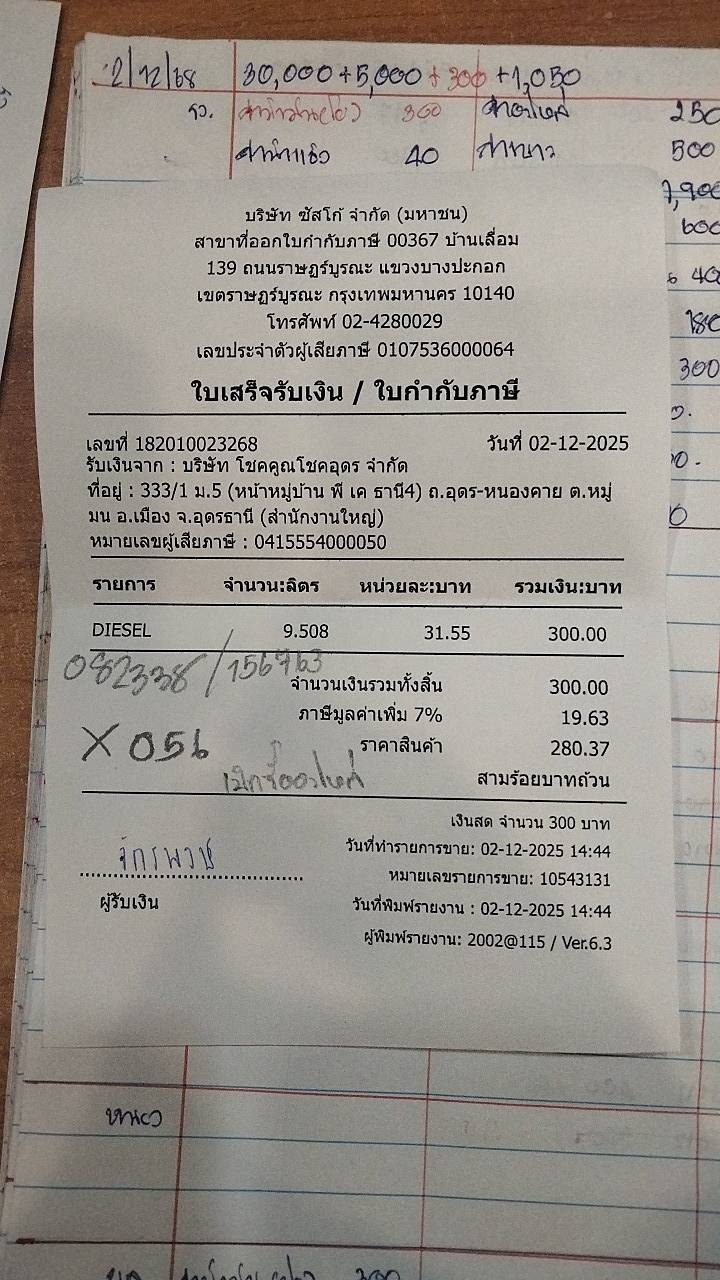 2/12/68 30,000+5,000+300+1,050
รว. 300 250
40 500
7,900
600
40
180
300
บริษัท ซัสโก้ จำกัด (มหาชน)
สาขาที่ออกใบกำกับภาษี 00367 บ้านเลื่อม
139 ถนนราษฎร์บูรณะ แขวงบางปะกอก
เขตราษฎร์บูรณะ กรุงเทพมหานคร 10140
โทรศัพท์ 02-4280029
เลขประจำตัวผู้เสียภาษี 0107536000064
ใบเสร็จรับเงิน / ใบกำกับภาษี
เลขที่ 182010023268 วันที่ 02-12-2025
รับเงินจาก : บริษัท โชคคูณโชคอุดร จำกัด
ที่อยู่ : 333/1 ม.5 (หน้าหมู่บ้าน พี เค ธานี4) ถ.อุดร-หนองคาย ต.หมู่
มน อ.เมือง จ.อุดรธานี (สำนักงานใหญ่)
หมายเลขผู้เสียภาษี : 0415554000050
รายการ จำนวน:ลิตร หน่วยละ:บาท รวมเงิน:บาท
DIESEL 9.508 31.55 300.00
082338/156763
จำนวนเงินรวมทั้งสิ้น 300.00
ภาษีมูลค่าเพิ่ม 7% 19.63
X 056 ราคาสินค้า 280.37
สามร้อยบาทถ้วน
เงินสด จำนวน 300 บาท
วันที่ทำรายการขาย: 02-12-2025 14:44
หมายเลขรายการขาย: 10543131
ผู้รับเงิน วันที่พิมพ์รายงาน : 02-12-2025 14:44
ผู้พิมพ์รายงาน: 2002@115 / Ver.6.3
300